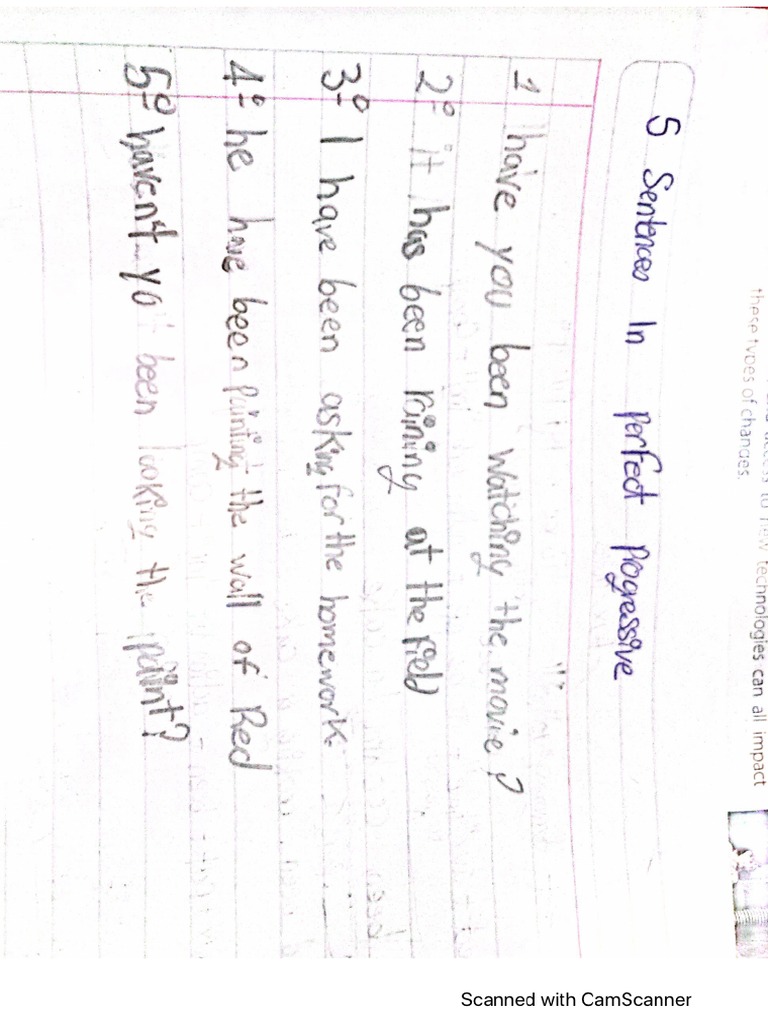 these types of changes.
to new technologies can all impact
5 Sentences In perfect progressive
1 have you been watching the movie?
2º it has been raining at the field
3º I have been asking for the homework.
4º he have been painting the wall of Red
5º haven't yo been looking the paint?
Scanned with CamScanner